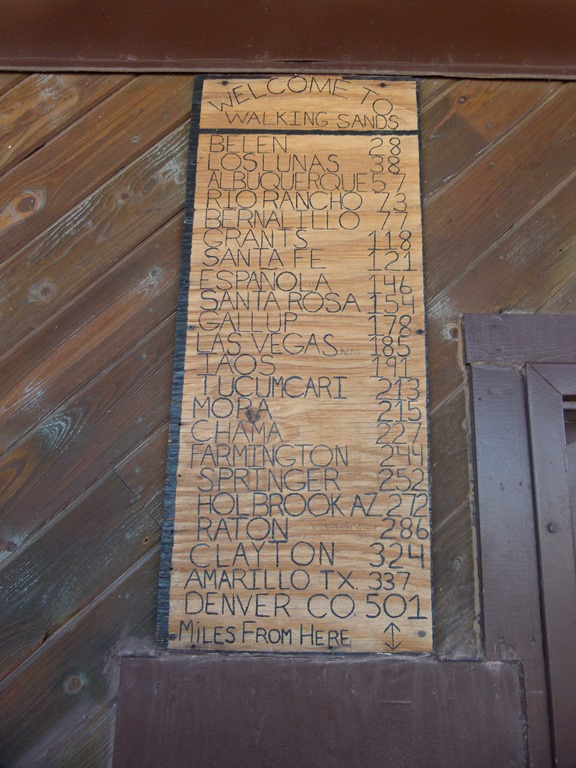 WELCOME TO
WALKING SANDS
BELEN 28
LOS LUNAS 38
ALBUQUERQUE 57
RIO RANCHO 73
BERNALILLO 77
GRANTS 118
SANTA FE 121
ESPANOLA 146
SANTA ROSA 154
GALLUP 178
LAS VEGAS N.M. 185
TAOS 191
TUCUMCARI 213
MORA 215
CHAMA 227
FARMINGTON 244
SPRINGER 252
HOLBROOK AZ 272
RATON 286
CLAYTON 324
AMARILLO TX. 337
DENVER CO 501
MILES FROM HERE ↕